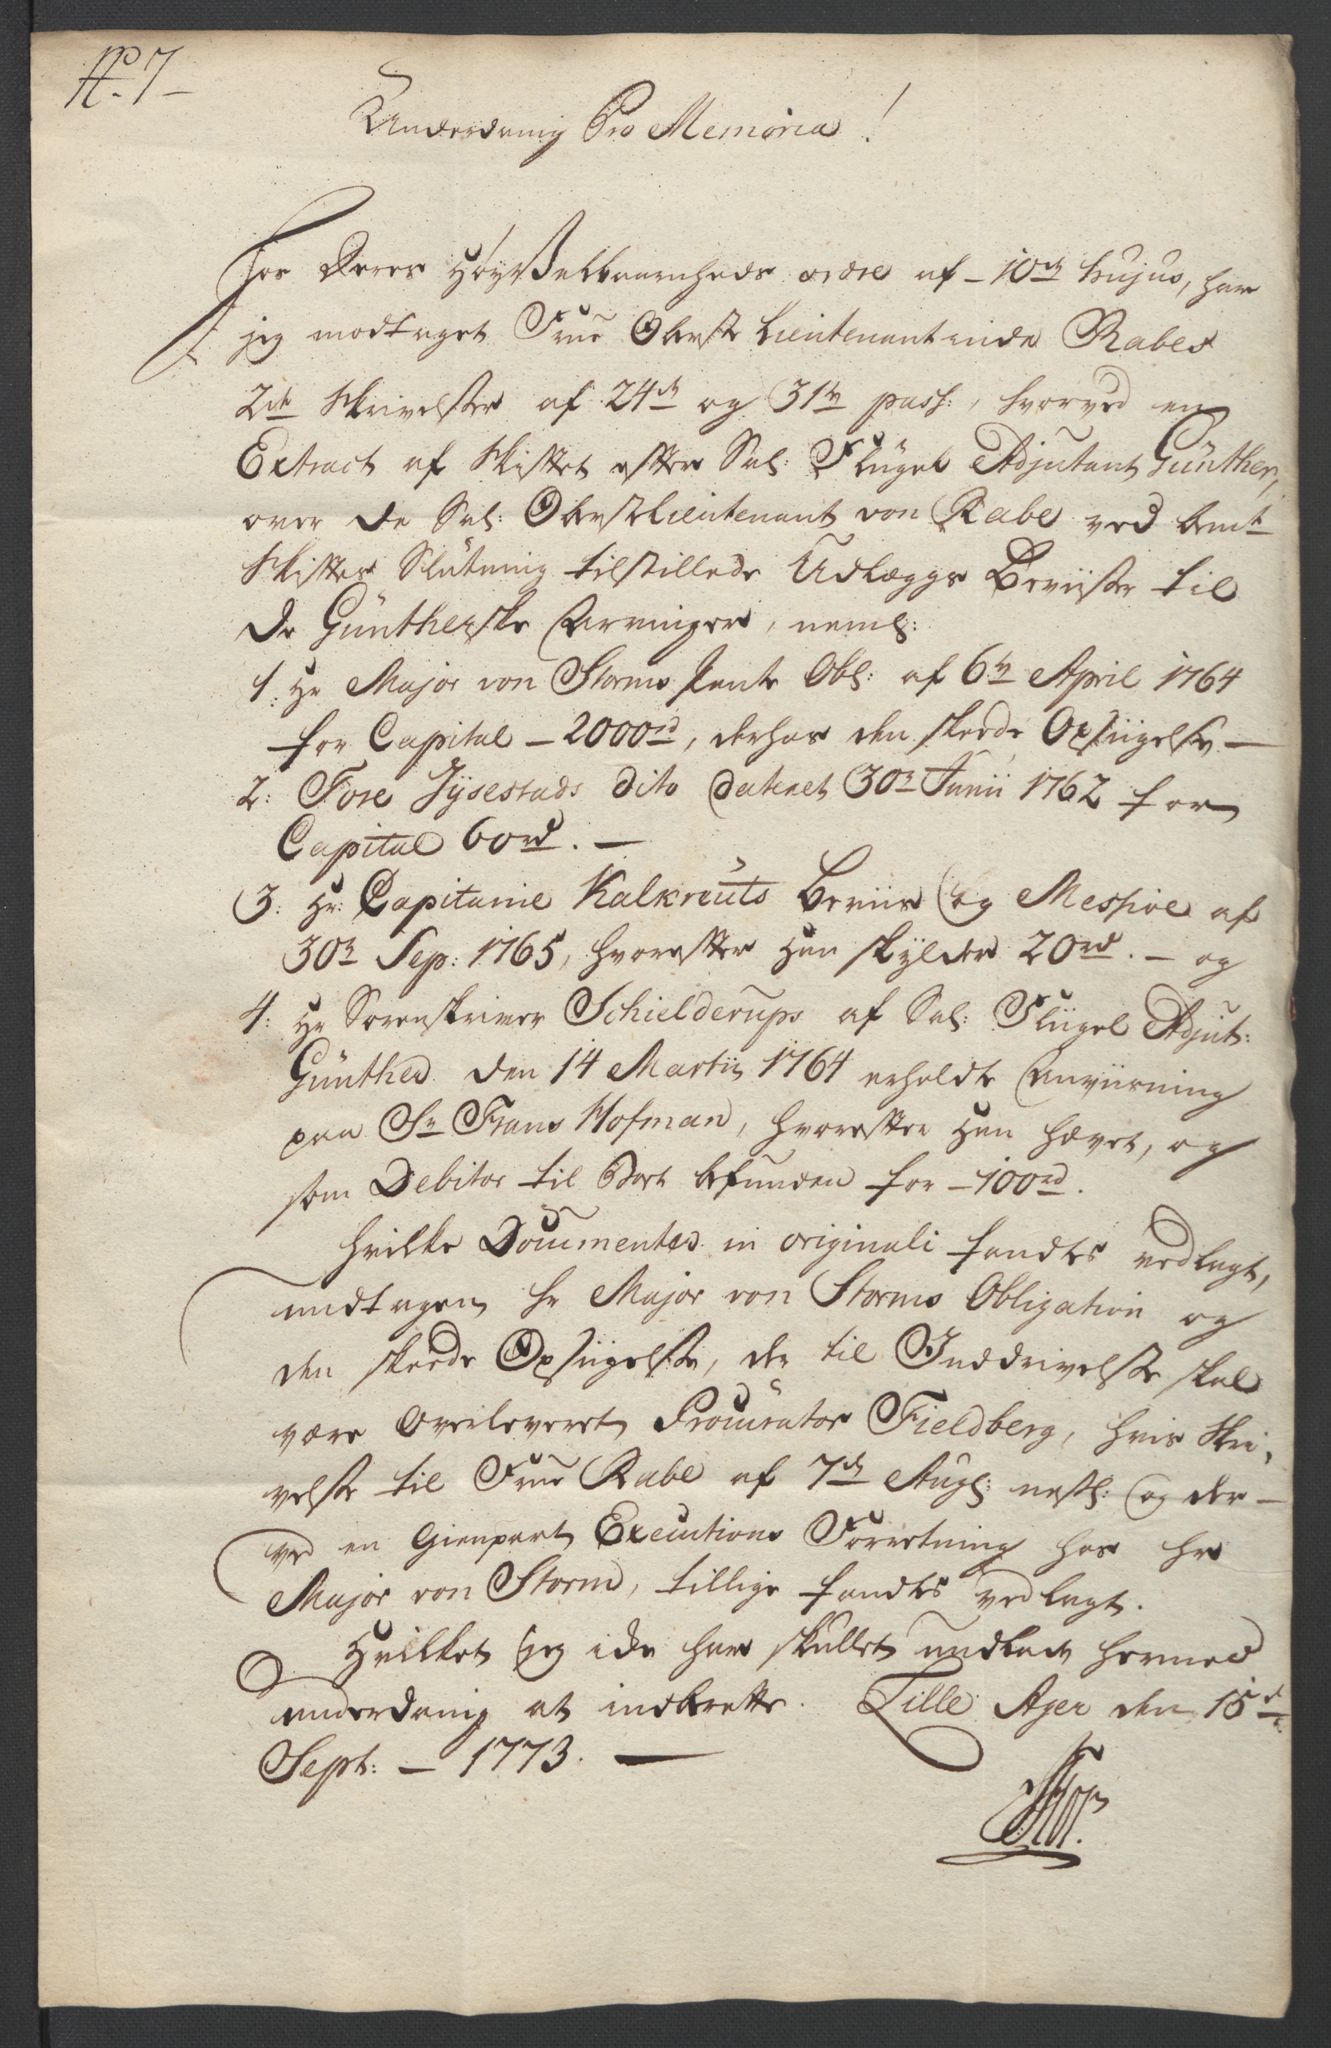 No. 7 –
Underdanig Pro Memoria!
Hos Deres HøyVelbaarenheds ordre af – 10de hujus, har
jeg modtaget Frue Oberst Lieutenantinde Rabes
2de Skrivelser af 24de og 31te pass:, hvorved en
Extract af Skiftet efter Sal: Flügel Adjutant Günther,
over de Sal: Oberstlieutenant von Rabe ved bemte
Skiftes Slutning tilstillede Udlægs Beviiser til
de Güntherske Arvinger, neml:
1: Hr Major von Storms Rente Obl: af 6te April 1764
for Capital – 2000rd, derhos den skeede Opsiigelse –
2: Tore Jysestads dito dateret 30te Junii 1762 for
Capital 60rd. –
3: Hr: Capitaine Kalkreuts Beviis og Messive af
30te Sep: 1765, hvorefter Han skylder 20rd. – og
4: Hr Sorenskriver Schielderups af Sal: Flügel Adjut:
Günther den 14 Martii 1764 erholdte Anviisning
paa Sr Frans Hofman, hvorefter Han hævet, og
som Debitor til Boet befunden for – 100rd.
Hvilke Documenter in originali fandtes vedlagt,
undtagen Hr Major von Storms Obligation og
den skeede Opsiigelse, der til Inddrivelse skal
være Overleveret Procurator Fieldberg, hvis Skri-
velse til Frue Rabe af 7de Aug: nestl: og der-
ved en Gienpart Executions Forretning hos Hr
Major von Storm, tillige fandtes vedlagt.
Hvilket jeg ide har skullet undladt hermed
underdanig at indberette. Lille Ager den 15de
Sept: – 1773. –